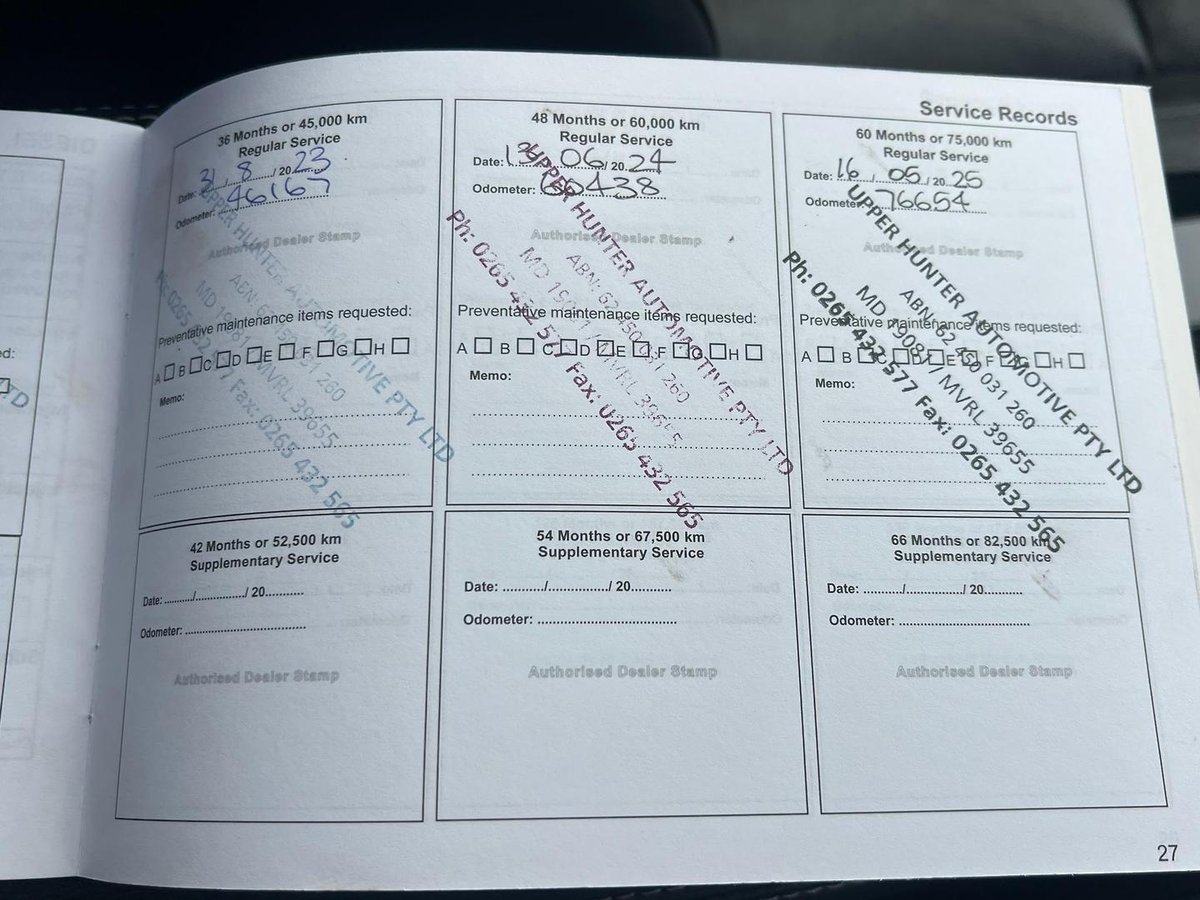 Service Records
36 Months or 45,000 km
Regular Service
Date: 31 / 8 / 20 23
Odometer: 46167
Authorised Dealer Stamp
UPPER HUNTER AUTOMOTIVE PTY LTD
MD 19081 / MVRL 39655
Fax: 0265 432 565
Preventative maintenance items requested:
A B C D E F G H
Memo:
48 Months or 60,000 km
Regular Service
Date: 06 / 20 24
Odometer: 60438
Authorised Dealer Stamp
UPPER HUNTER AUTOMOTIVE PTY LTD
MD 19081 / MVRL 39655
Ph: 0265 432 577 Fax: 0265 432 565
Preventative maintenance items requested:
A B C D E F G H
Memo:
60 Months or 75,000 km
Regular Service
Date: 16 / 05 / 20 25
Odometer: 76654
Authorised Dealer Stamp
UPPER HUNTER AUTOMOTIVE PTY LTD
MD 19081 / MVRL 39655
Ph: 0265 432 577 Fax: 0265 432 565
Preventative maintenance items requested:
A B C D E F G H
Memo:
42 Months or 52,500 km
Supplementary Service
Date: ........../................/ 20...........
Odometer: ...................................
Authorised Dealer Stamp
54 Months or 67,500 km
Supplementary Service
Date: ........../................/ 20...........
Odometer: ...................................
Authorised Dealer Stamp
66 Months or 82,500 km
Supplementary Service
Date: ........../................/ 20...........
Odometer: ...................................
Authorised Dealer Stamp
27